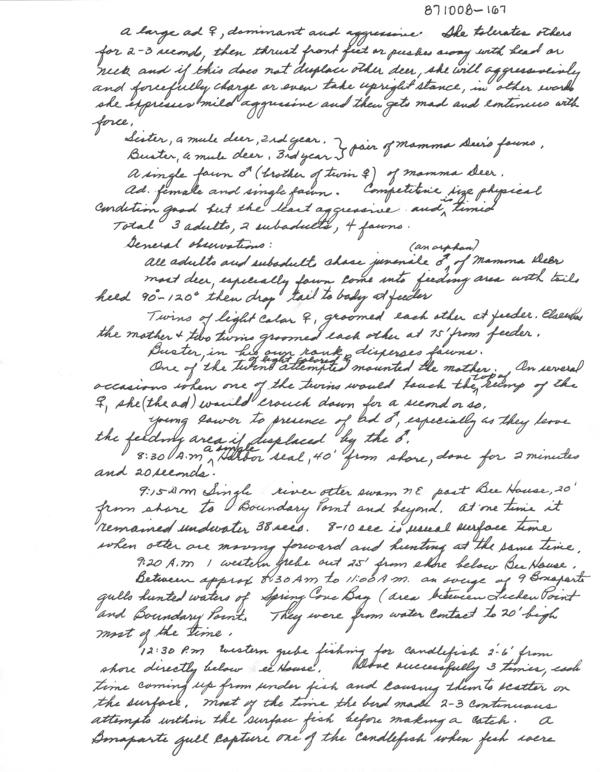 871008-167
A large ad ♀, dominant and aggressive. She tolerates others
for 2-3 seconds, then thrust front feet or pushes away with head or
neck and if this does not displace other deer, she will aggressively
and forcefully charge or even take upright stance, in other words
she expresses mild aggression and then gets mad and continues with
force.
Sister, a mule deer, 2nd year. } pair of Mamma Deer's fawns.
Buster, a mule deer, 3rd year.
A single fawn ♂ (brother of twin ♀) of Mamma Deer.
Ad. female and single fawn. Competitive size physical
condition good but the least aggressive and is timid
Total 3 adults, 2 subadults, 4 fawns.
General observations:
(an orphan)
All adults and subadults chase juvenile ♂ of Mamma Deer
most deer, especially fawn come into feeding area with tails
held 90°-120° then drop tail to body at feeder
Twins of light color ♀, groomed each other at feeder.
the mother & two twins groomed each other at 75' from feeder.
Buster, in his own rank, disperses fawns.
of light colored ♀
One of the twins attempted mounted the mother. On several
occasions when one of the twins would touch the top of rump of the
♀, she (the ad) would crouch down for a second or so.
Young lower to presence of ad ♂, especially as they leave
the feeding area if displaced by the ♂.
8:30 A.M. a single Harbor seal, 40' from shore, dove for 2 minutes
and 20 seconds.
9:15 AM Single river otter swam NE past Bee House, 20'
from shore to Boundary Point and beyond. At one time it
remained underwater 38 secs. 8-10 sec is usual surface time
when otter are moving forward and hunting at the same time.
9:20 A.M. 1 western grebe out 25' from shore below Bee House.
Between approx 8:30 AM to 11:00 A.M. an average of 9 Bonaparte
gulls hunted waters of Spring Cove Bay (area between Lichen Point
and Boundary Point. They were from water contact to 20' high
most of the time.
12:30 P.M. Western grebe fishing for candlefish 2'-6' from
shore directly below Bee House. Dove successfully 3 times, each
time coming up from under fish and causing them to scatter on
the surface. Most of the time the bird made 2-3 continuous
attempts within the surface fish before making a catch. A
Bonaparte gull capture one of the candlefish when fish were